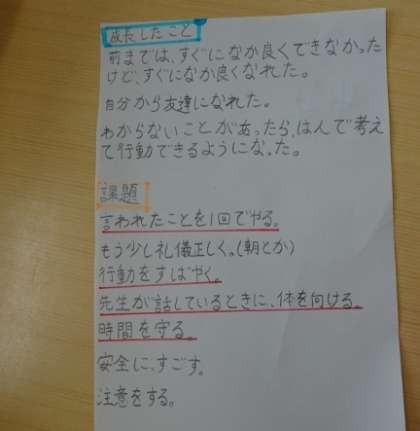 成長したこと
前までは、すぐになか良くできなかった
けど、すぐになか良くなれた。
自分から友達になれた。
わからないことがあったら、はんで考え
て行動できるようになった。
課題
言われたことを1回でやる。
もう少し礼儀正しく。(朝とか)
行動をすばやく。
先生が話しているときに、体を向ける。
時間を守る。
安全に、すごす。
注意をする。